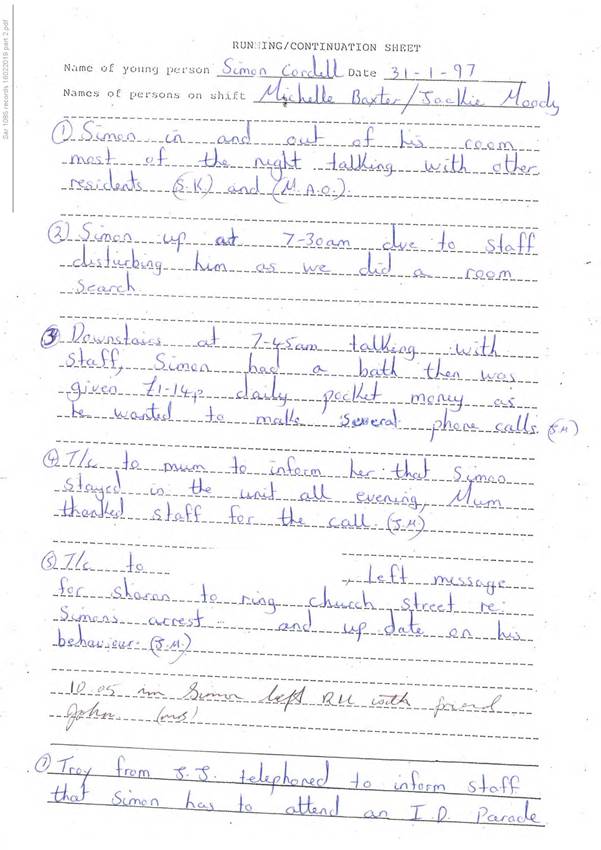 SAr 1085 records 18022019 part 2.pdf
RUNNING/CONTINUATION SHEET
Name of young person Simon Cordell Date 31-1-97
Names of persons on shift Michelle Baxter/Jackie Moody
① Simon in and out of his room
most of the night talking with other
residents (S.K) and (M.A.O.).
② Simon up at 7-30am due to staff
disturbing him as we did a room
search
③ Downstairs at 7-45am talking with
staff, Simon had a bath then was
given £1-14p daily pocket money as
he wanted to make several phone calls. (J.M)
④ T/c to mum to inform her that Simon
stayed in the unit all evening, Mum
thanked staff for the call. (J.M.)
⑤ T/c to , Left message
for sharon to ring church street re:
Simons arrest and up date on his
behaviour. (J.M.)
10.05 Simon left RU with friend
John.
① Troy from S.S. telephoned to inform staff
that Simon has to attend an I.D. Parade